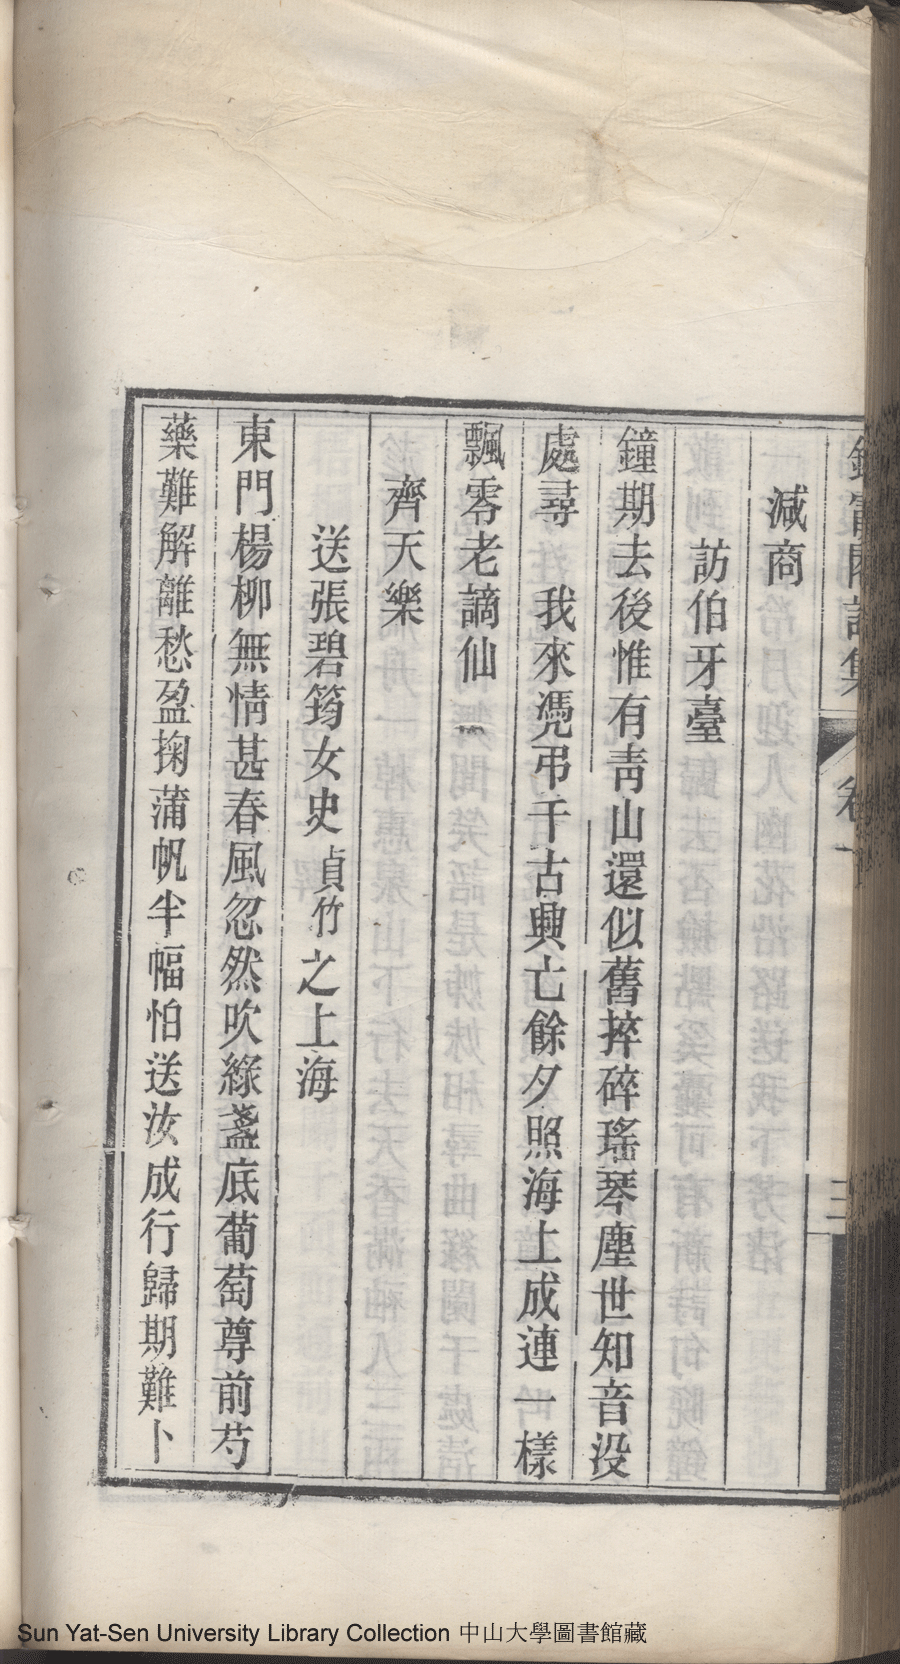 減商
訪伯牙臺
鐘期去後惟有靑山還似舊捽碎瑤琴塵世知音没
處尋　我來憑弔千古興亡餘夕照海上成連一樣
飄零老謫仙
齊天樂
送張碧筠女史貞竹之上海
東門楊柳無情甚春風忽然吹綠盞底葡萄尊前芍
藥難解離愁盈掬蒲帆半幅怕送汝成行歸期難卜
Sun Yat-Sen University Library Collection 中山大學圖書館藏